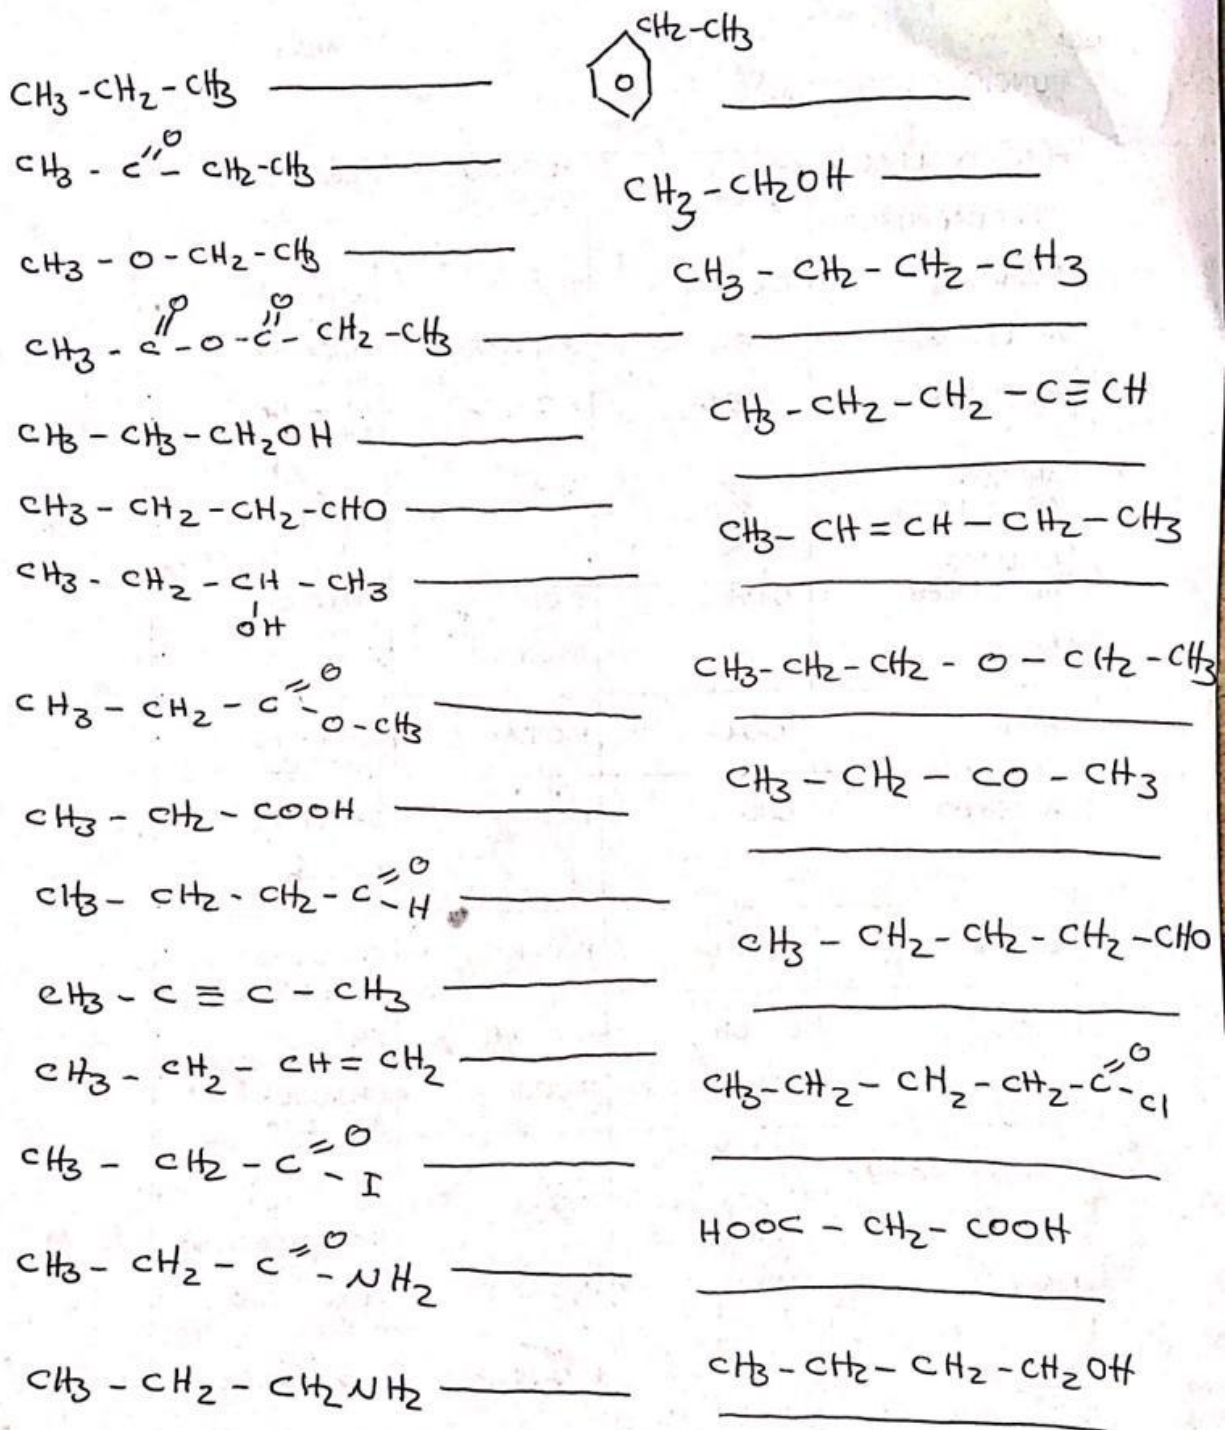 CH3-CH2-CH3
CH3-C=O-CH2-CH3
CH3-O-CH2-CH3
CH3-C=O-O-C=O-CH2-CH3
CH3-CH3-CH2OH
CH3-CH2-CH2-CHO
CH3-CH2-CH-CH3
OH
CH3-CH2-C=O-O-CH3
CH3-CH2-COOH
CH3-CH2-CH2-C=O-H
CH3-C≡C-CH3
CH3-CH2-CH=CH2
CH3-CH2-C=O-I
CH3-CH2-C=O-NH2
CH3-CH2-CH2NH2
CH2-CH3
CH3-CH2OH
CH3-CH2-CH2-CH3
CH3-CH2-CH2-C≡CH
CH3-CH=CH-CH2-CH3
CH3-CH2-CH2-O-CH2-CH3
CH3-CH2-CO-CH3
CH3-CH2-CH2-CH2-CHO
CH3-CH2-CH2-CH2-C=O-Cl
HOOC-CH2-COOH
CH3-CH2-CH2-CH2OH